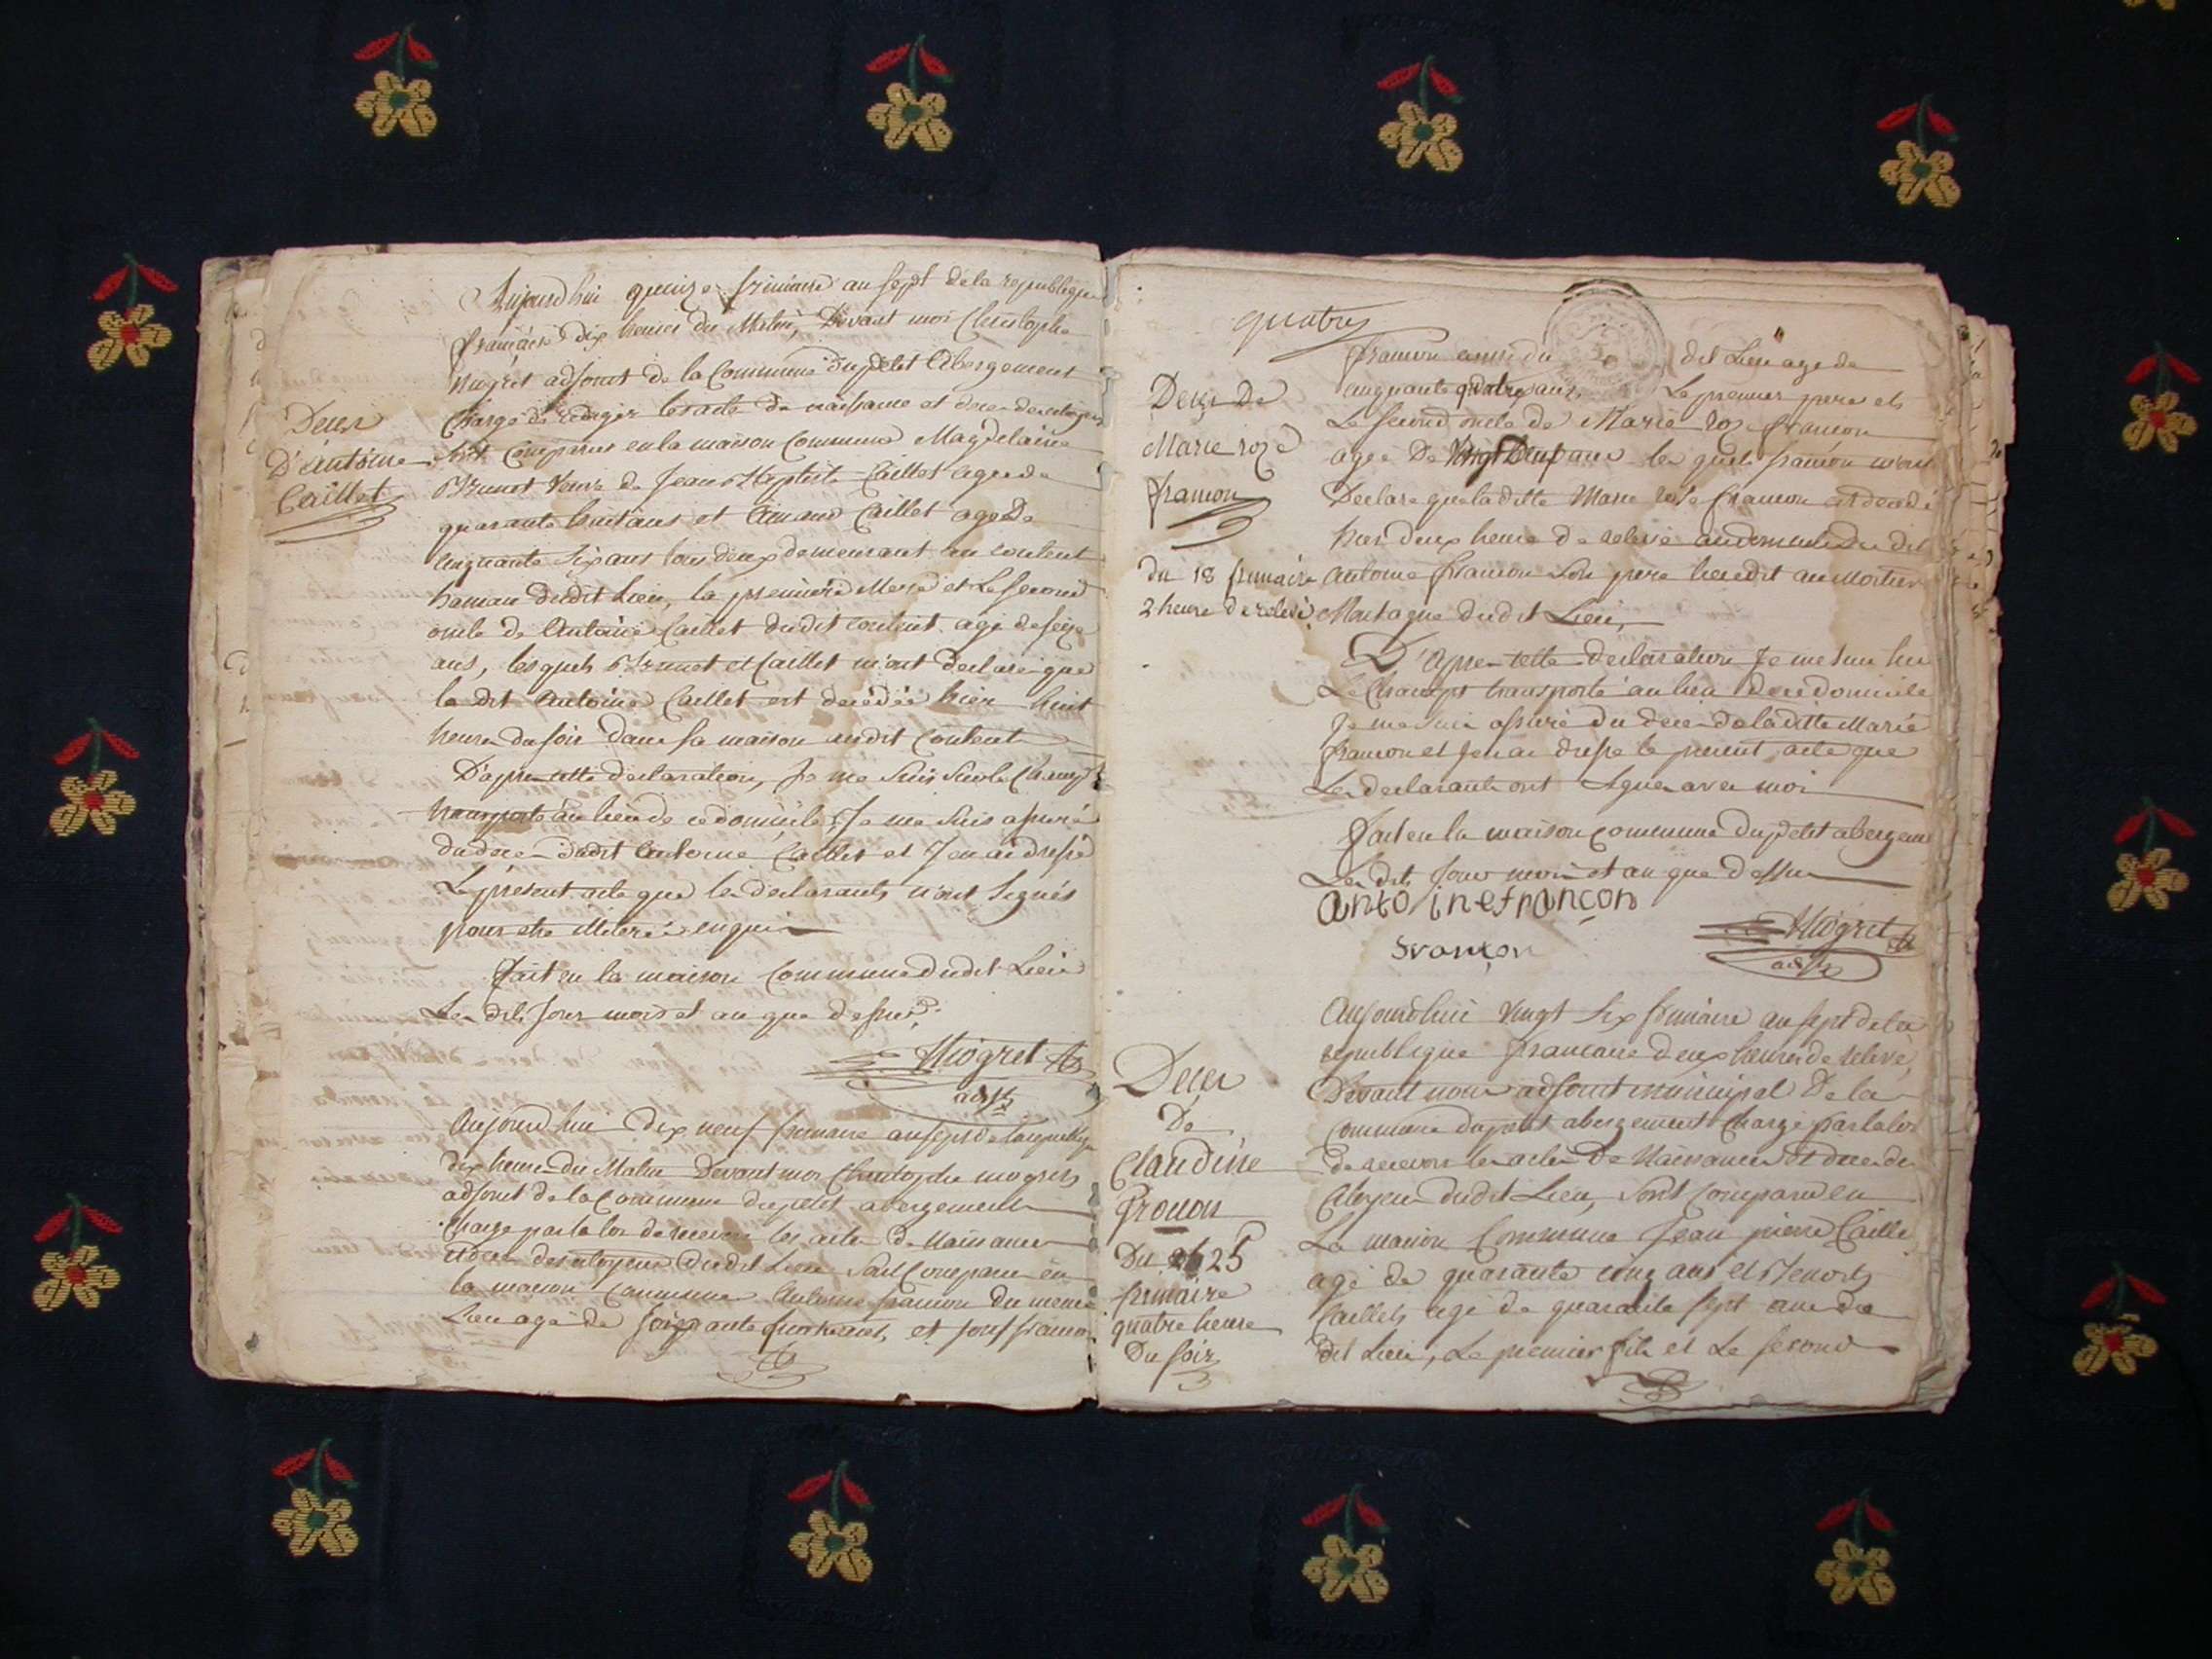 Aujourd'hui quinze frimaire an sept de la republique
française dix heures du Matin, Devant moi Christophe
Mogret adjoint de la Commune du petit Abergement
Chargé de rediger les acte de naissance et deces des citoyens
Deces
D'Antoine
Caillet
sont comparus en la maison Commune Magdelaine
Brunet veuve de Jean Baptiste Caillet agee de
quarante huit ans et Caillet age de
cinquante six ans tous deux demeurant au
hamau dudit Lieu, la premiere Mere et Le second
oncle de Antoine Caillet dudit age de seize
ans, lesquels Brunet et Caillet m'ont declaré que
le dit Antoine Caillet est decédée hier huit
heures du soir dans sa maison audit
D'apres cette declaration, Je me suis sur le Champ
transporté au lieu de ce domicile, Je me suis assuré
du deces dudit Antoine Caillet et J'en ai dressé
Le présent acte que les declarants n'ont Signés
pour etre illiteré enquis
fait en la maison Commune dudit Lieu
Les dits Jour mois et an que dessus
Mogret
adjt
Aujourdhui dix neuf frimaire an sept de la republique
dix heures du Matin Devant moi Christophe mogret
adjoint de la Commune du petit abergement
Chargé par la loi de recevoir les actes de Naissances
et deces des citoyens dudit Lieu Sont Comparu en
la maison Commune Antoine francon du meme
Lieu agé de soixante ans, et francon
quatre
francon dudit Lieu age de
cinquante quatre ans, Le premier pere et
Le second oncle de Marie roze francon
agée De vingt ans les quels francon m'ont
Declare que la ditte Marie rose francon est decedé
hier deux heure de relevé au domicile du dit
Antoine francon Son pere
Montagne dudit Lieu,
Deces De
Marie rozé
francon
du 18 frimaire
2 heure de relevé
D'apres cette declaration Je me suis sur
Le Champt transporté au lieu de ce domicile
Je me suis assuré du deces de la ditte Marie
francon et J'en ai dressé le present acte que
Les declarants ont Signer avec moi
fait en la maison commune du petit abergement
Les dits Jour mois et an que dessus
antoinefrançon
françon
Mogret
adjt
Deces
De
Claudine
Du 25
frimaire
quatre heure
Du soir
Aujourdhui vingt six frimaire an sept de la
republique francaise deux heures de relevé,
Devant nous adjoint municipal De la
Commune du petit abergement Chargé par la loi
de recevoir les actes De Naissances et deces des
Citoyens dudit Lieu, Sont Comparu en
La maison Commune Jean pierre Caillet
agé de quarante cinq ans et Benoit
Caillet agé de quarante sept ans du
dit Lieu, Le premier fils et Le second